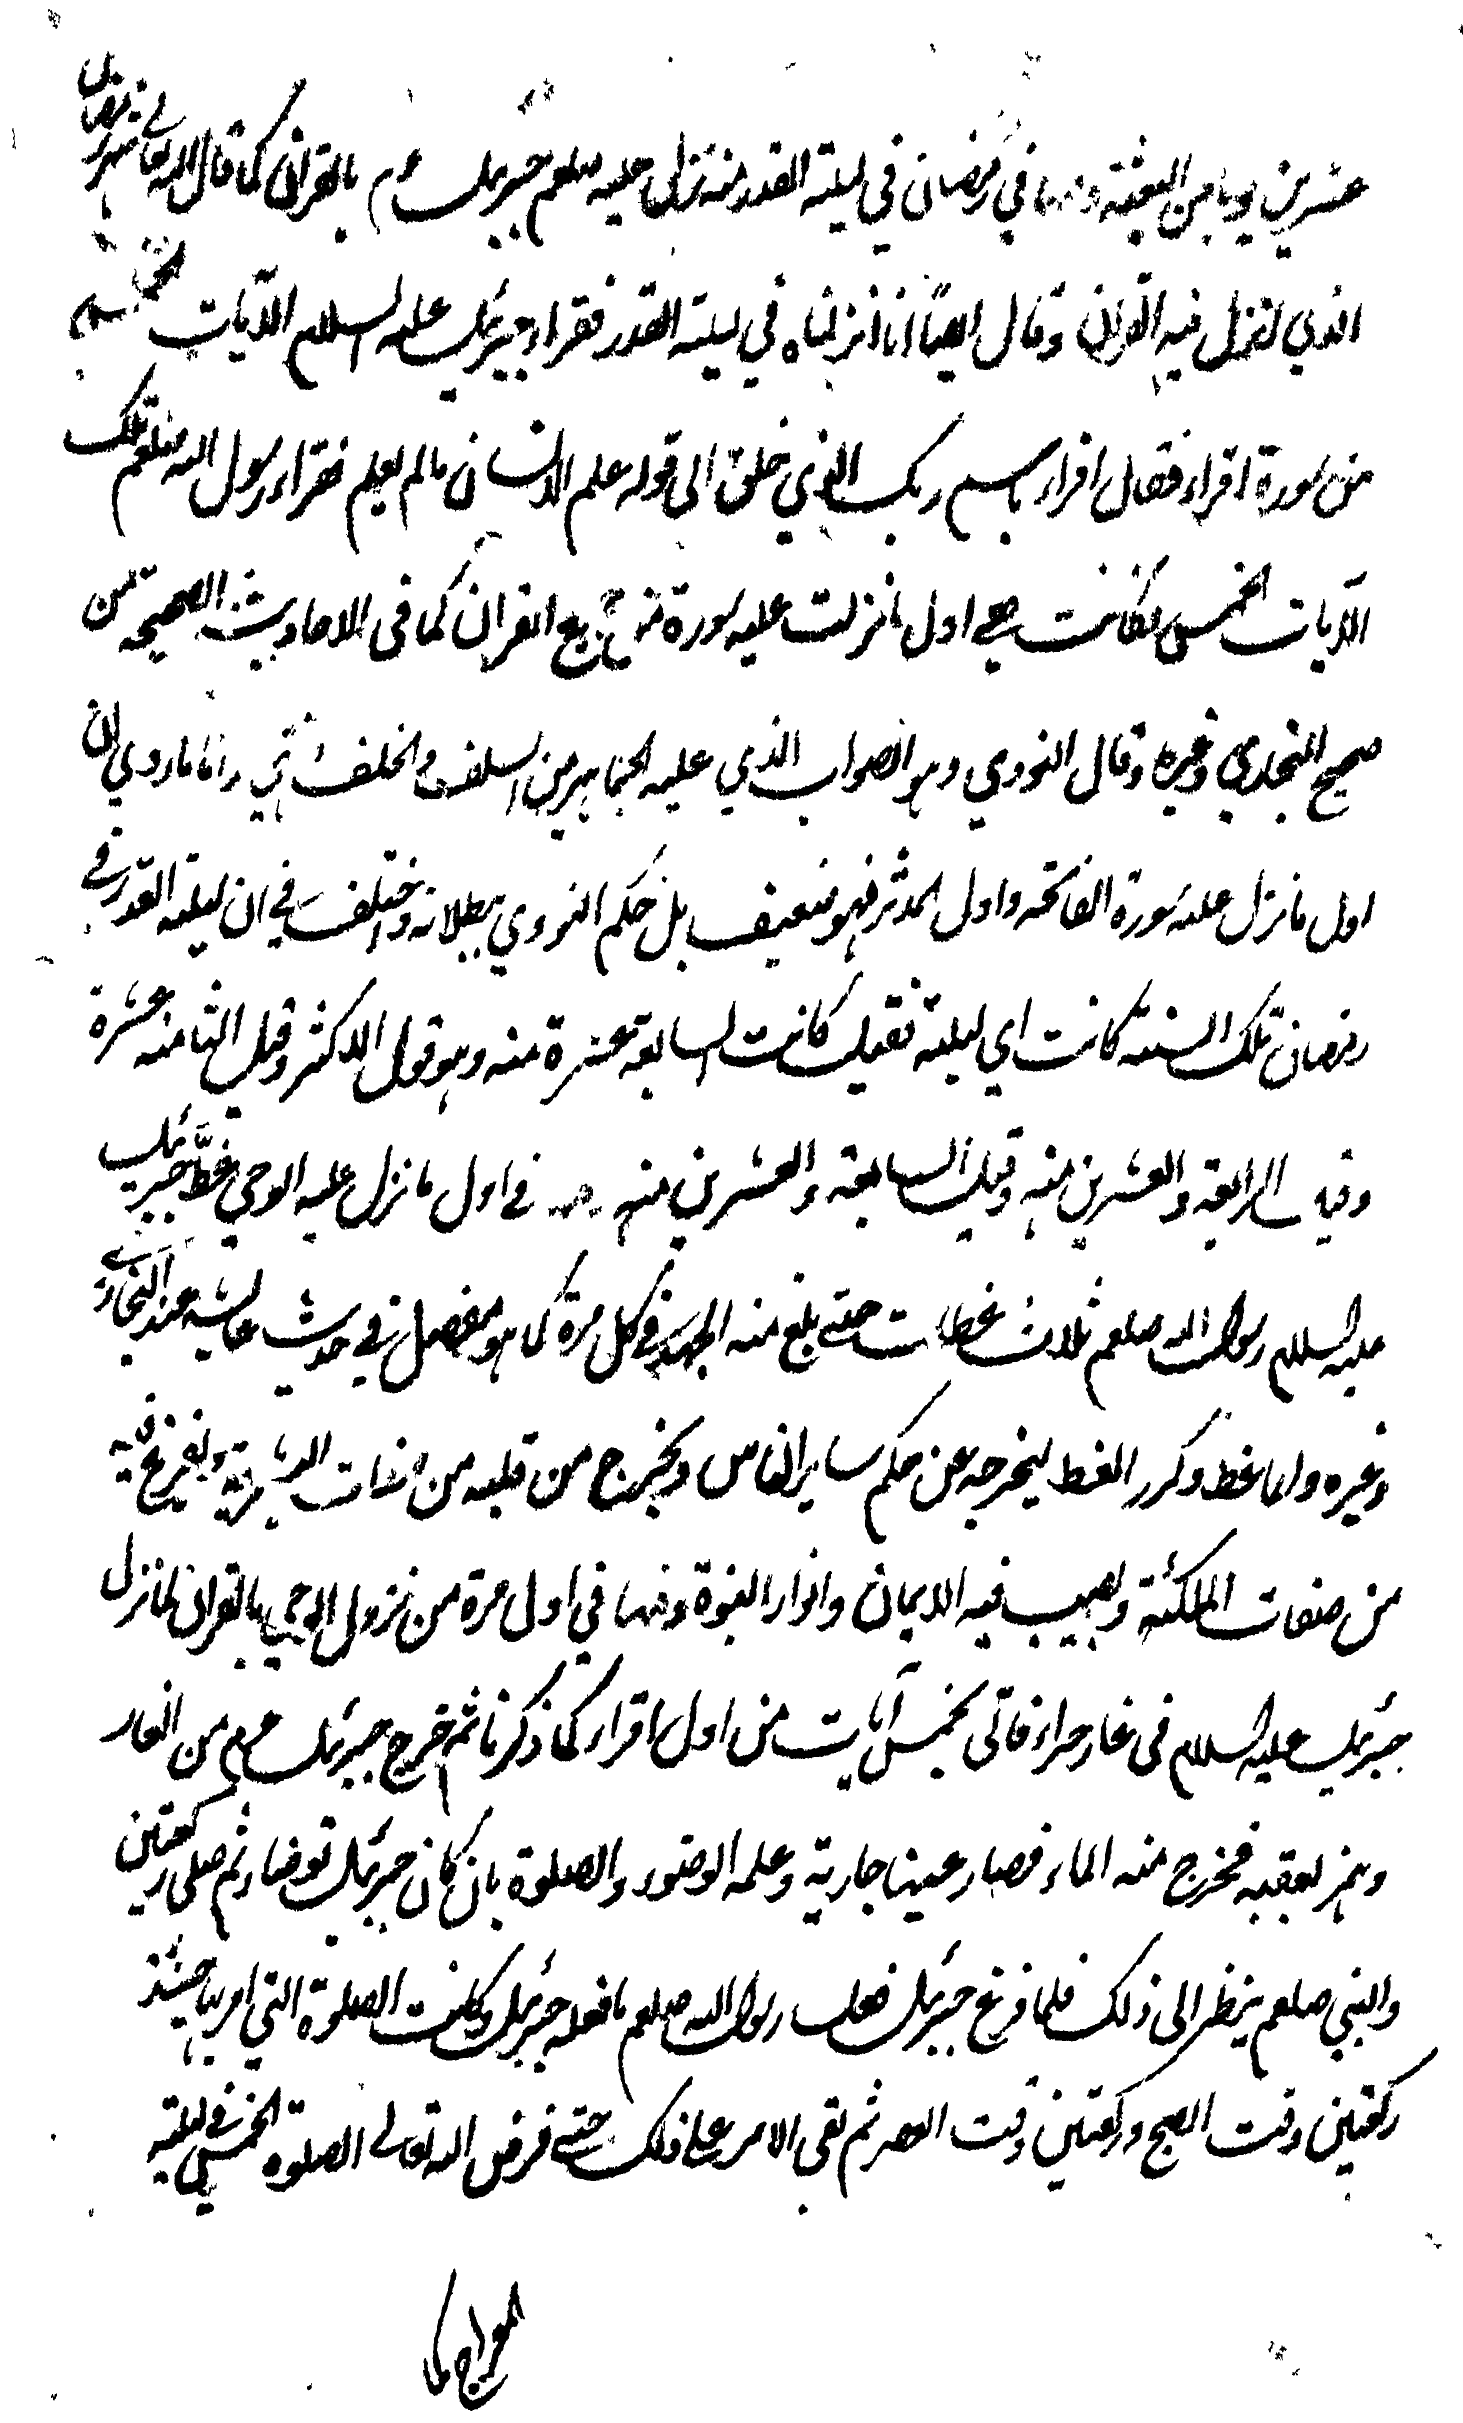 عشرين يوما من البعثة وفيها في رمضان في ليلة القدر منه نزل عليه صلعم جبرئيل عم بالقران كما قال الله تعالى شهر رمضان
الذي انزل فيه القران وقال ايضًا انا انزلناه في ليلة القدر فقراء جبرئيل عليه السلام الآيات الخمسة
من سورة اقراء فقال اقراء باسم ربك الذي خلق الى قوله علم الانسان مالم يعلم فقراء رسول الله صلعم تلك
الآيات الخمس فكانت هي اول ما نزلت عليه سورة من جميع القران كما فى الاحاديث الصحيحة من
صحيح البخاري وغيره وقال النووي وهو الصواب الذي عليه الجماهير من السلف والخلف انتهي واما ما روي ان
اول ما نزل عليه سورة الفاتحه واول المدثر فهو ضعيف بل حكم النووي ببطلانه واختلف في ان ليلة القدر في
رمضان تلك السنة كانت اي ليلة فقيل كانت السابعة عشرة منه وهو قول الاكثر وقيل الثامنه عشرة
وقيل الرابعة والعشرين منه وقيل السابعة والعشرين منه وفيها في اول ما نزل عليه الوحي غطَّ جبرئيل
عليه السلام رسول الله صلعم ثلاث غطات حتى بلغ منه الجهد في كل مرة كما هو مفصل في حديث عائشه عند البخاري
وغيره وانما غط وكرر الغط ليخرجه عن حكم ساير الناس ويخرج من قلبه من صفات البشرية ويفرغ فيه
من صفات الملكئة ويصب فيه الايمان وانوار النبوة وفيها في اول مرة من نزول الوحي بالقران لما نزل
جبرئيل عليه السلام فى غار حراء فاتى بخمس آيات من اول اقراء كما ذكرنا ثم خرج جبرئيل عم من الغار
وهمز بعقبه فخرج منه الماء فصار عينا جارية وعلمه الوضوء والصلوة بان كان جبرئيل توضاء ثم صلى ركعتين
والنبي صلعم ينظر الى ذلك فلما فرغ جبرئيل فعل رسول الله صلعم ما فعله جبرئيل وكانت الصلوة التي امر بها حينئذ
ركعتين وقت الصبح وركعتين وقت العصر ثم بقى الامر على ذلك حتى فرض الله تعالى الصلوة الخمس في ليلة
المعراج